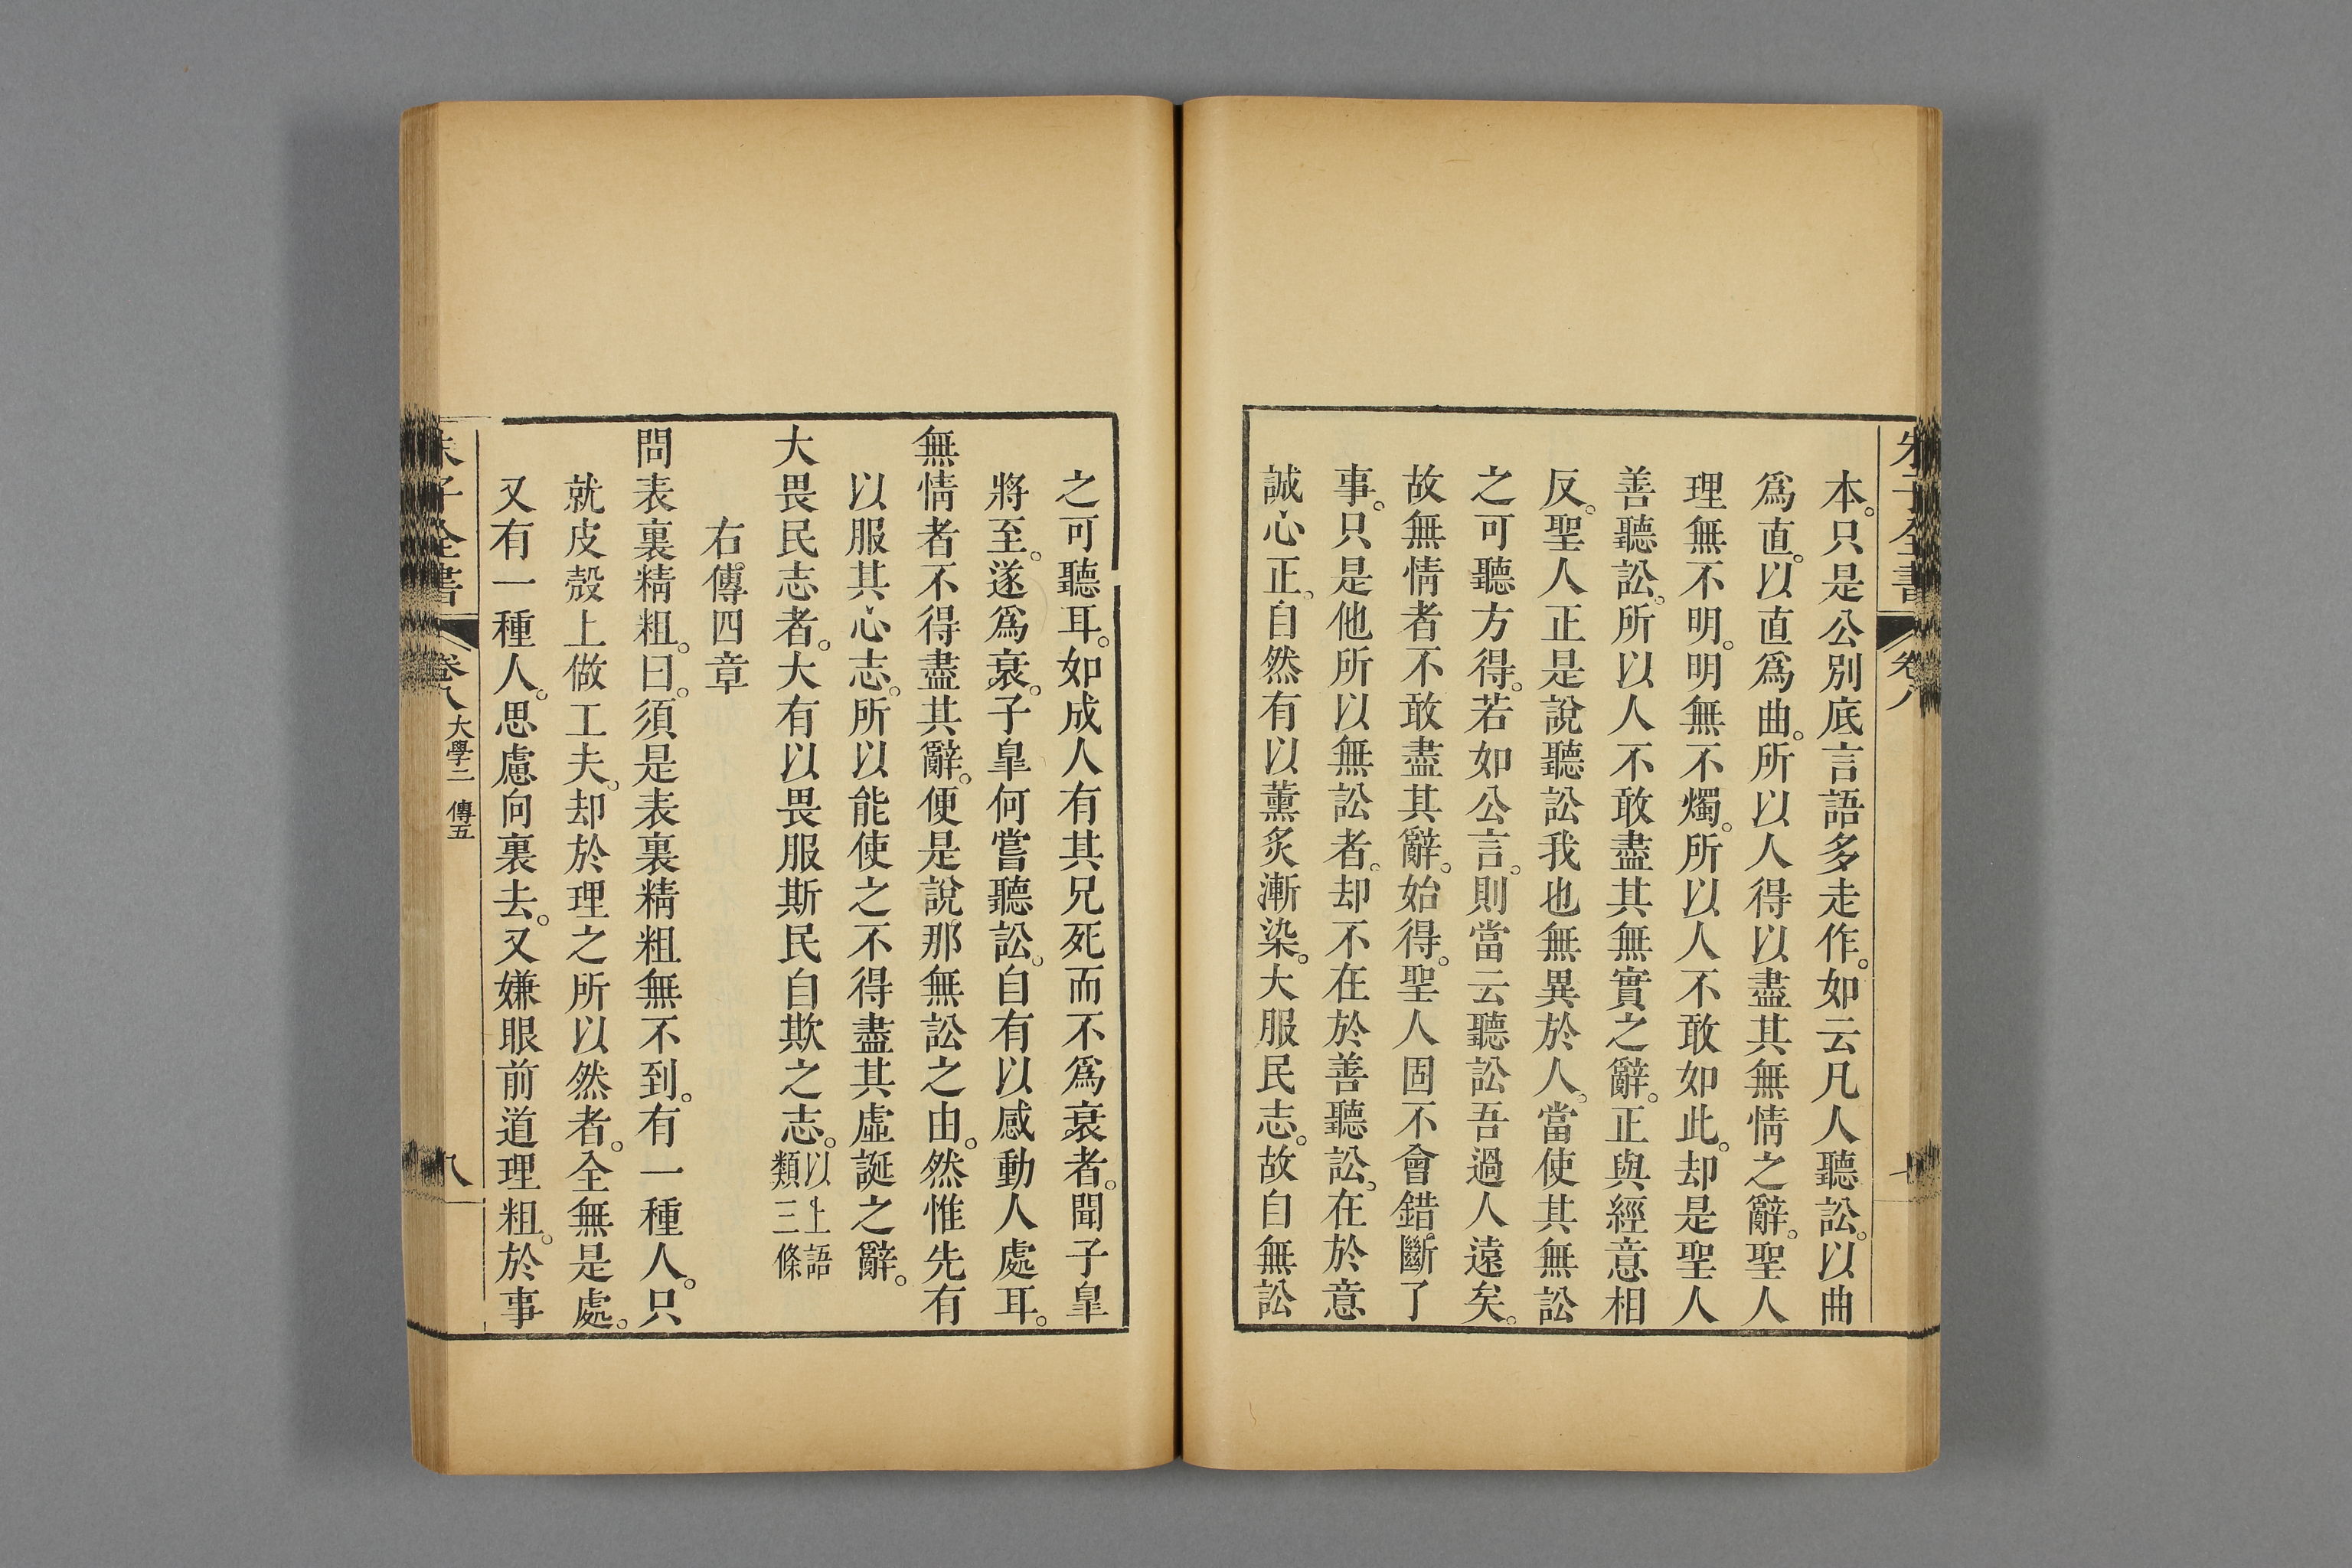 朱子全書 卷八
本。只是公別底言語多走作。如云凡人聽訟。以曲
爲直。以直爲曲。所以人得以盡其無情之辭。聖人
理無不明。明無不燭。所以人不敢如此。却是聖人
善聽訟。所以人不敢盡其無實之辭。正與經意相
反。聖人正是說聽訟我也無異於人。當使其無訟
之可聽方得。若如公言。則當云聽訟吾過人遠矣。
故無情者不敢盡其辭。始得。聖人固不會錯斷了
事。只是他所以無訟者。却不在於善聽訟。在於意
誠心正。自然有以薰炙漸染。大服民志。故自無訟
之可聽耳。如成人有其兄死而不爲衰者。聞子皐
將至。遂爲衰。子皐何嘗聽訟。自有以感動人處耳。
無情者不得盡其辭。便是說那無訟之由。然惟先有
以服其心志。所以能使之不得盡其虛誕之辭。
大畏民志者。大有以畏服斯民自欺之志。以上語類三條
右傳四章
問表裏精粗。曰。須是表裏精粗無不到。有一種人。只
就皮殼上做工夫。却於理之所以然者。全無是處。
又有一種人。思慮向裏去。又嫌眼前道理粗。於事
朱子全書 卷八 大學二 傳五 八